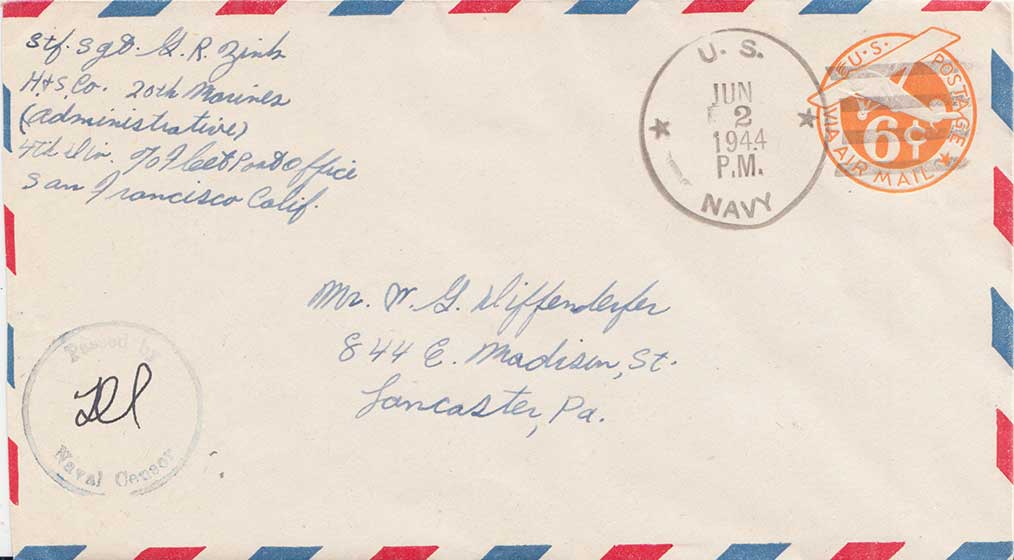 Stf. Sgt. G. R. Zink
H+S. Co. 20th Marines
(administrative)
4th Div. c/o Fleet Post Office
San Francisco Calif.
U. S.
JUN
2
1944
P.M.
NAVY
U.S. POSTAGE
6¢
VIA AIR MAIL
Mr. W. G. Diffenderfer
844 E. Madison, St.
Lancaster, Pa.
Passed by
Naval Censor